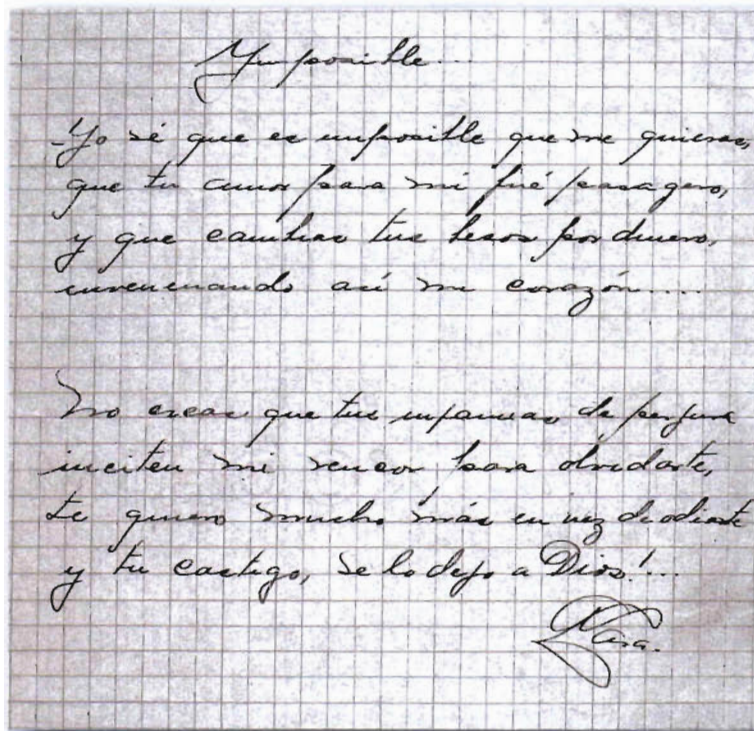 Imposible...
-Yo sé que es imposible que me quieras,
que tu amor para mi fué pasagero,
y que cambias tus besos por dinero,
envenenando así mi corazón....
No creas que tus infamias de perjura
inciten mi rencor para olvidarte,
te quiero mucho más en vez de odiarte
y tu castigo, se lo dejo a Dios!...
Lara.